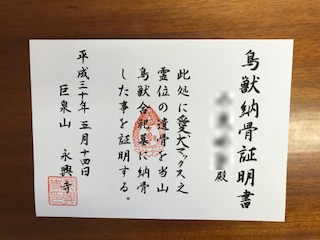 鳥獣納骨証明書
殿
此処に愛犬マックス之
霊位の遺骨を当山
鳥獣合祀墓に納骨
した事を証明する。
平成三十年五月十四日
巨泉山 永興寺